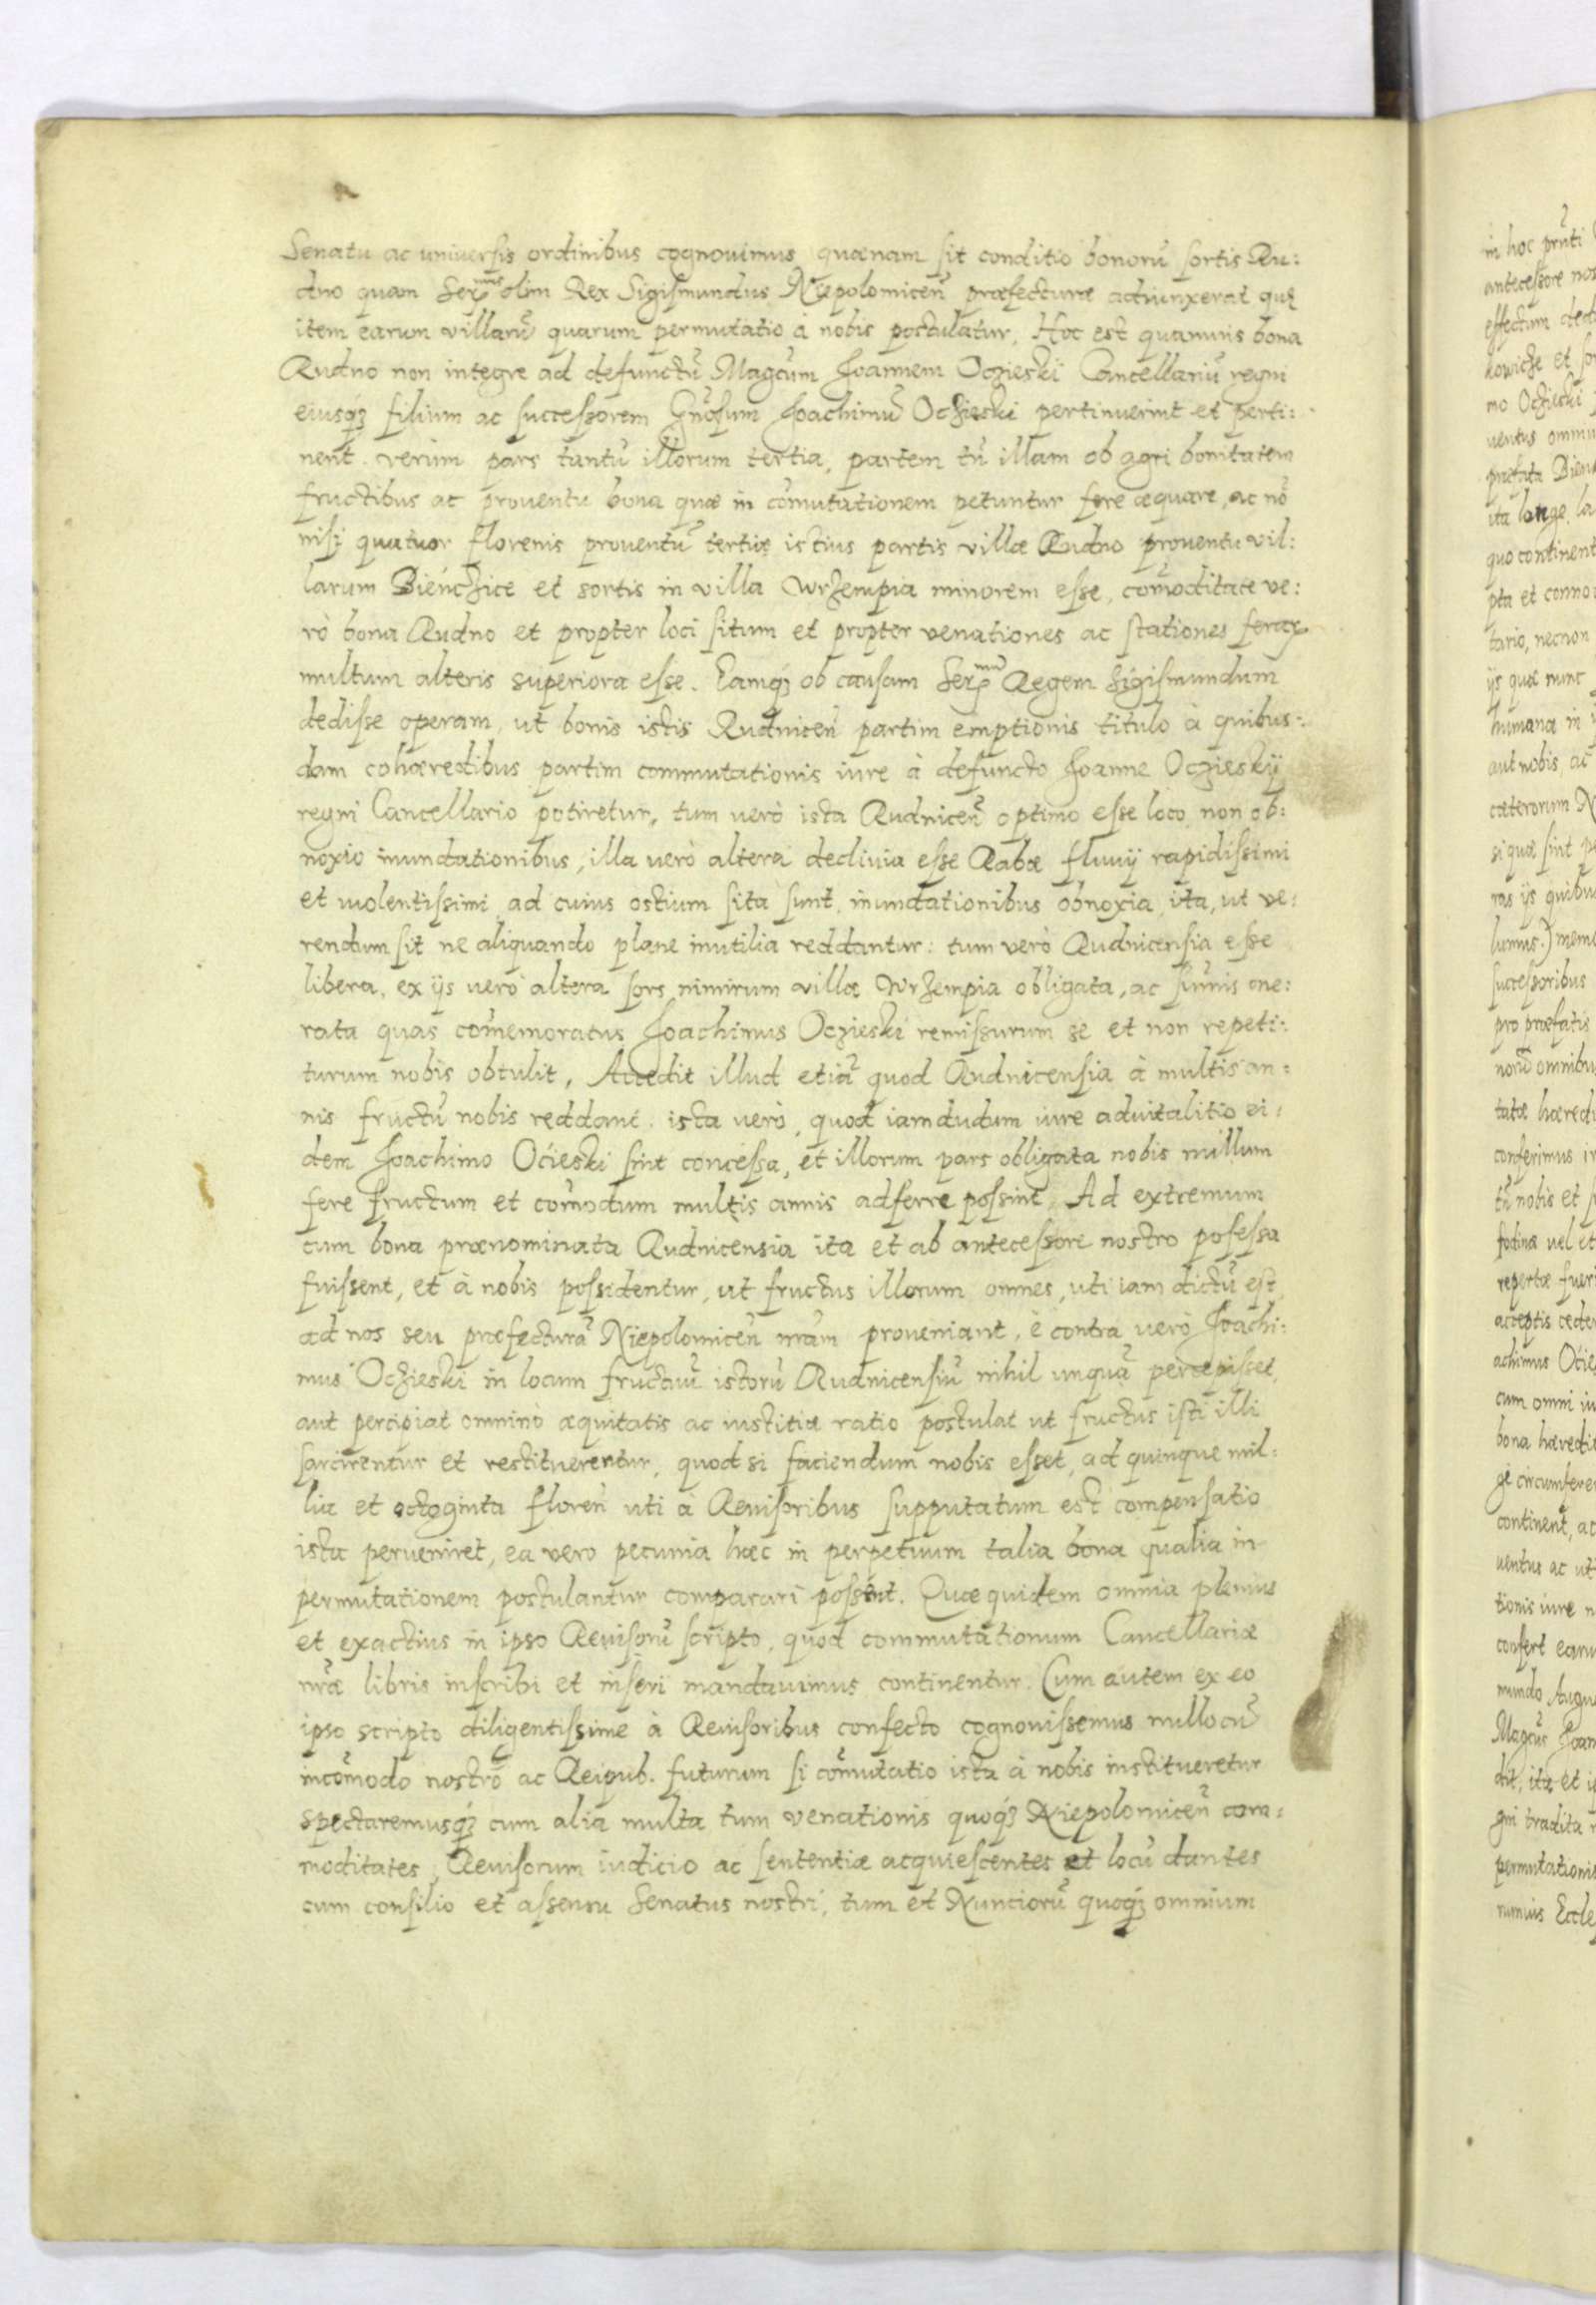 Senatu ac universis ordinibus cognouimus quænam sit conditio bonorũ sortis Ru:
dno quam Serᵐᵘˢ olim Rex Sigismundus Niepolomiceñ præfecturæ adiunxerat quę
item earum villarũ quarum permutatio à nobis postulatur. Hoc est quamuis bona
Rudno non integre ad defunctũ Magcum Joannem Oczieski Cancellariũ regni
eiusq́ʒ filium ac successorem Gñosum Joachimũ Oczieski pertinuerint et perti:
nent. verum pars tantũ illorum tertia, partem tñ illam ob agri bonitatem
fructibus ac prouentu bona quæ in com̃utationem petuntur fere æquare, ac nõ
nisi quatuor florenis prouentũ tertiæ istius partis villæ Rudno prouentu vil:
larum Bieńczice et sortis in villa Wrzempia minorem esse, com̃oditate ve:
rò bona Rudno et propter loci situm et propter venationes ac stationes ferarꝝ
multum alteris superiora esse. Eamq́ʒ ob causam Serᵐᵘ Regem Sigismundum
dedisse operam, ut bonis istis Rudniceñ partim emptionis titulo à quibus:
dam cohæredibus partim commutationis iure à defuncto Joanne Oczieskij
regni Cancellario potiretur, tum verò ista Rudniceñ optimo esse loco non ob:
noxio inundationibus, illa verò altera declivia esse Rabæ fluuij rapidissimi
et uiolentissimi ad cuius ostium sita sunt, inundationibus obnoxia, ita, ut ve:
rendum sit ne aliquando plane inutilia reddantur: tum verò Rudnicensia esse
libera, ex ijs verò altera sors nimirum villæ Wrzempia obligata, ac sum̃is one:
rata quas com̃emoratus Joachimus Oczieski remissurum se et non repeti:
turum nobis obtulit. Accedit illud etiã quod Rudnicensia à multis an:
nis fructũ nobis reddant. ista verò, quod iamdudum iure aduitalitio ei:
dem Joachimo Ocieski sint concessa, et illorum pars obligata nobis nullum
fere fructum et com̃odum multis annis adferre possint. Ad extremum
cum bona prænominata Rudnicensia ita et ab antecessore nostro possessa
fuissent, et à nobis possidentur, ut fructus illorum omnes, uti iam dictũ est,
ad nos seu præfecturã Niepolomiceñ nr̃am proveniant, è contra verò Joachi:
mus Oczieski in locum fructuũ istorũ Rudnicensiũ nihil unquã percepisset,
aut percipiat omninò æquitatis ac iustitiæ ratio postulat ut fructus isti illi
sarcirentur et restituerentur, quod si faciendum nobis esset, ad quinque mil:
lia et octoginta floreñ uti à Reuisoribus supputatum est compensatio
ista perveniret, ea vero pecunia hæc in perpetuum talia bona qualia in
permutationem postulantur comparari possent. Quæ quidem omnia plenius
et exactius in ipso Reuisorũ scripto, quod commutationum Cancellariæ
nr̃æ libris inscribi et inseri mandauimus continentur. Cum autem ex eo
ipso scripto diligentissime à Reuisoribus confecto cognouissemus nullo cũ
incom̃odo nostro ac Reipub. futurum si com̃utatio ista à nobis institueretur
spectaremusq́ʒ cum alia multa tum venationis quoq́ʒ Niepolomiceñ com:
moditates, Reuisorum iudicio ac sententiæ acquiescentes et locũ dantes
cum consilio et assensu Senatus nostri, tum et Nunciorũ quoq́ʒ omnium